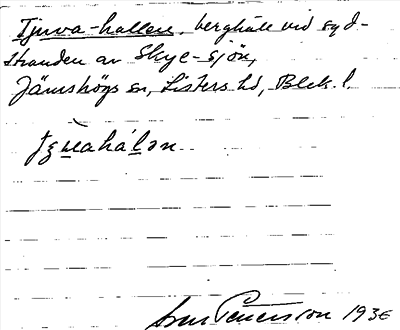 Tjuva-hallen, berghäll vid syd-
stranden av Skye-sjön,
Jämshögs sn, Listers hd, Blek. l.
Pettersson 193